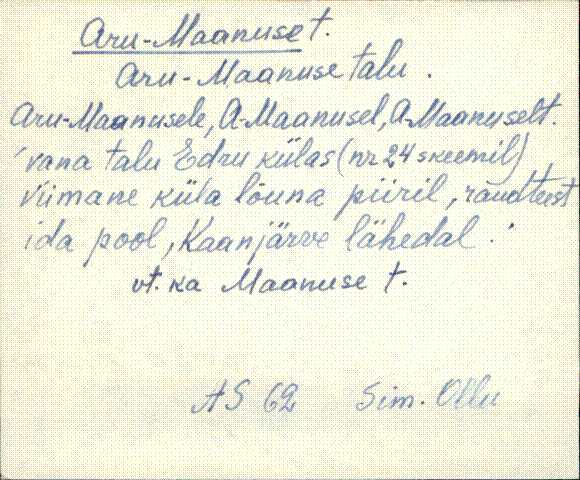 Aru-Maanuse t.
Aru-Maanuse talu.
Aru-Maanusele, A-Maanusel, A-Maanuselt.
'vana talu Edru külas (nr 24 skeemil)
viimane küla lõuna piiril, raudteest
ida pool, Kaanjärve lähedal.'
vt. ka Maanuse t.
AS 62 Sim. Ollu